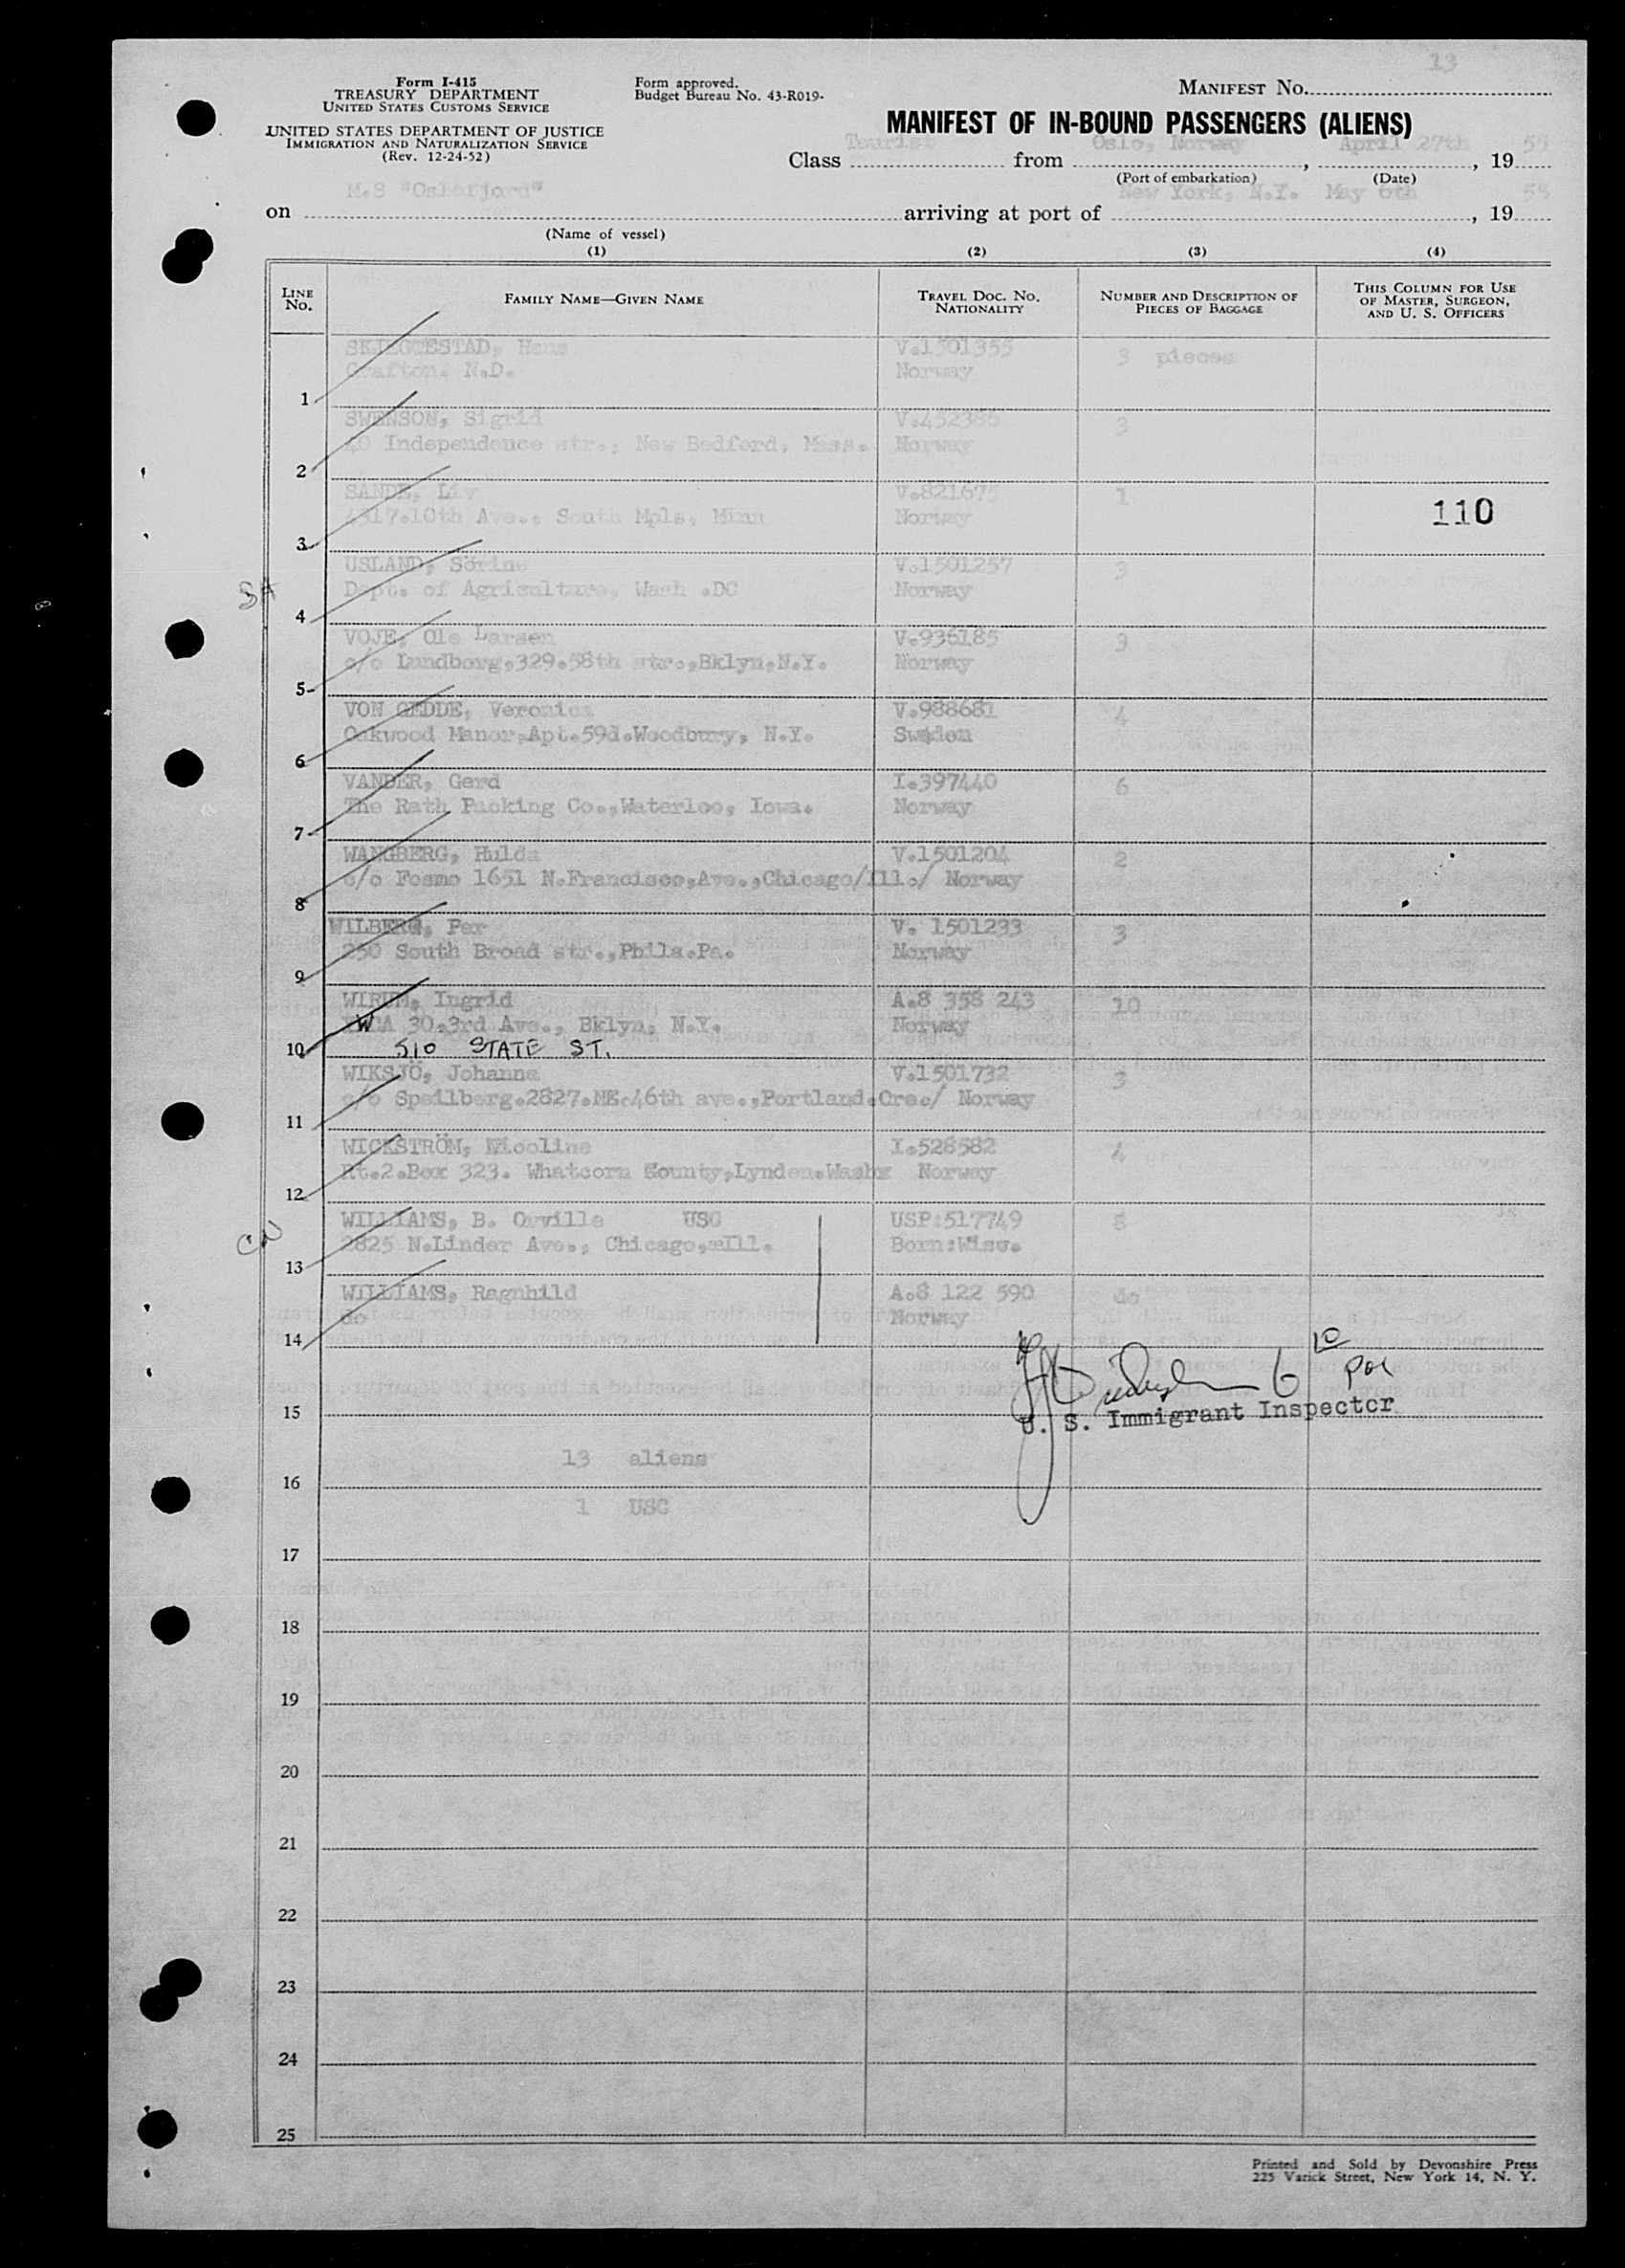 13
Form I-415
TREASURY DEPARTMENT
UNITED STATES CUSTOMS SERVICE
UNITED STATES DEPARTMENT OF JUSTICE
IMMIGRATION AND NATURALIZATION SERVICE
(Rev. 12-24-52)
Form approved.
Budget Bureau No. 43-R019-
MANIFEST No.
MANIFEST OF IN-BOUND PASSENGERS (ALIENS)
Class Tourist from Oslo, Norway, April 27th, 19 55
(Port of embarkation) (Date)
on M.S "Oslofjord" arriving at port of New York, N.Y. May 6th, 19 55
(Name of vessel)
(1) (2) (3) (4)
LINE No. FAMILY NAME—GIVEN NAME TRAVEL DOC. NO. NATIONALITY NUMBER AND DESCRIPTION OF PIECES OF BAGGAGE THIS COLUMN FOR USE OF MASTER, SURGEON, AND U. S. OFFICERS
SKJEGGESTAD, Hans V.1501355 3 pieces
Grafton. N.D. Norway
1
SWENSON, Sigrid V.452386 3
40 Independence str., New Bedford, Mass. Norway
2
SANDE, Liv V.821675 1
4317.10th Ave., South Mpls, Minn Norway 110
3
USLAND, Sörine V.1501257 3
SA Dept. of Agriculture, Wash .DC Norway
4
VOJE, Ole Larsen V.936185 3
c/o Lundborg,329.58th str.,Bklyn,N.Y. Norway
5
VON GEDDE, Veronica V.988681 4
Oakwood Manor,Apt.59d.Woodbury, N.Y. Sweden
6
VANDER, Gerd I.397440 6
The Rath Packing Co.,Waterloo, Iowa. Norway
7
WANGBERG, Hulda V.1501204 2
c/o Fosmo 1651 N.Francisco,Ave.,Chicago/Ill./ Norway
8
WILBERG, Per V. 1501233 3
250 South Broad str.,Phila.Pa. Norway
9
WIRUM, Ingrid A.8 358 243 10
YWCA 30.3rd Ave., Bklyn, N.Y. Norway
10 510 STATE ST.
WIKSJÖ, Johanne V.1501732 3
c/o Speilberg.2827.NE.46th ave.,Portland.Ore./ Norway
11
WICKSTRÖM, Nicoline I.528582 4
Rt.2.Box 323. Whatcorn County,Lynden.Wash Norway
12
WILLIAMS, B. Orville USC USP:517749 8
2825 N.Linder Ave., Chicago,Ill. Born:Wisc.
13
WILLIAMS, Ragnhild A.8 122 590 do
do Norway
14
15 U. S. Immigrant Inspector
13 aliens
16
1 USC
17
18
19
20
21
22
23
24
25
Printed and Sold by Devonshire Press
225 Varick Street, New York 14, N. Y.